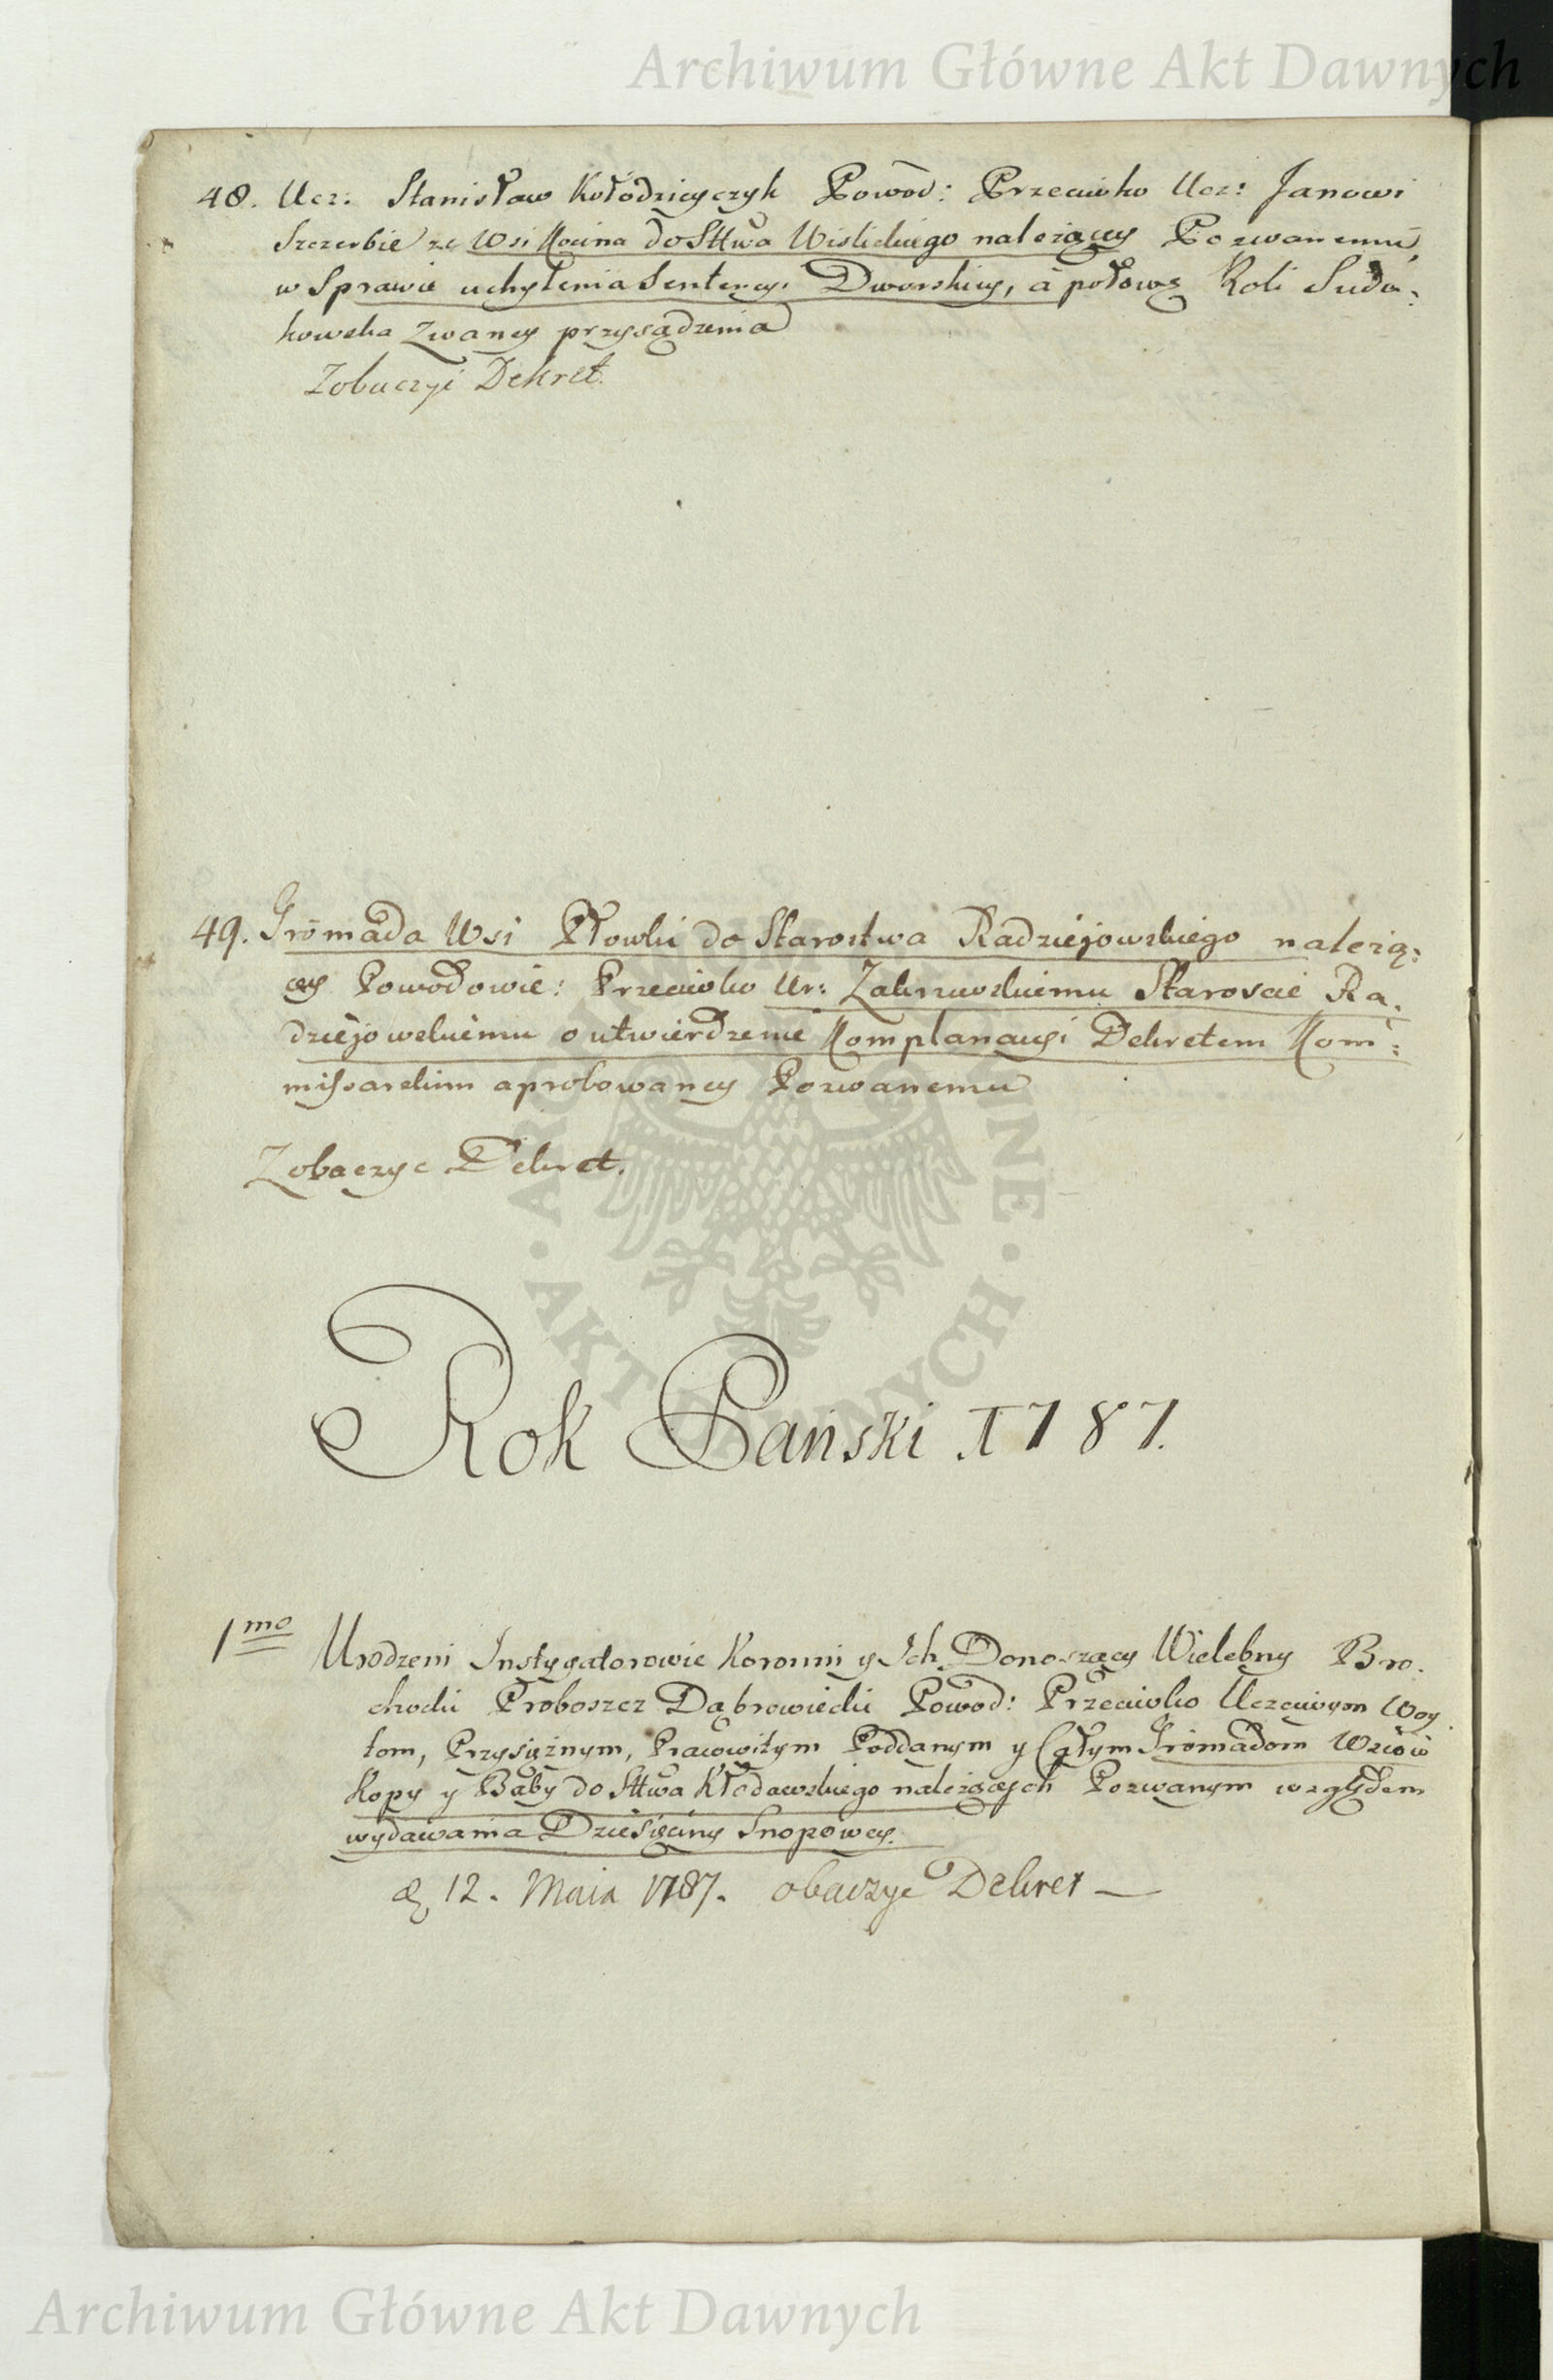 Archiwum Główne Akt Dawnych
48. Ucz: Stanisław Kołodzieyczyk Powod: Przeciwko Ucz: Janowi
Szczerbie ze Wsi Kocina do Sttwa Wislickiego należącey Pozwanemu,
w Sprawie uchylenia Sentencyi Dworskiey, a połowę Roli Suda-
kowska zwaney przysądzenia
Zobaczyć Dekret.
49. Gromada Wsi Płowki do Starostwa Radziejowskiego należą-
cey Powodowie: Przeciwko Ur: Zakrzewskiemu Staroscie Ra-
dziejowskiemu o utwierdzenie Komplanacyi Dekretem Kom-
missarskim aprobowaney Pozwanemu
Zobaczyc Dekret.
Rok Panski 1787.
1mo Urodzeni Instygatorowie Koronni y Ich Donoszący Wielebny Bro-
chocki Proboszcz Dąbrowiecki Powod: Przeciwko Uczciwym Woy-
tom, Przysiężnym, Pracowitym Poddanym y Całym Gromadom Wsiow
Kopy y Baby do Sttwa Kłodawskiego należących Pozwanym względem
wydawania Dziesięciny Snopowey.
12. Maia 1787. obaczyć Dekret —
ARCHIWUM GŁÓWNE · AKT DAWNYCH ·
Archiwum Główne Akt Dawnych